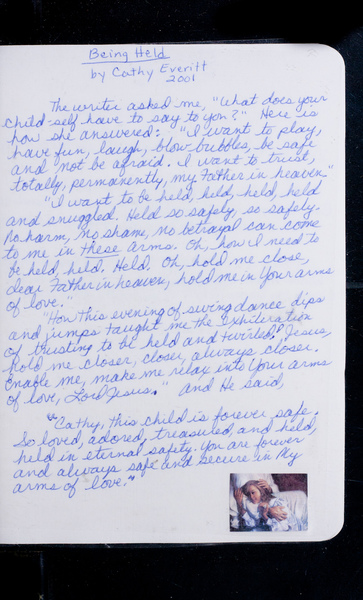 Being Held
by Cathy Everitt
2001
The writer asked me, "What does your
child-self have to say to you?" Here is
how she answered: "I want to play,
have fun, laugh, blow bubbles, be safe
and not be afraid. I want to trust,
totally, permanently, my Father in heaven."
"I want to be held, held, held, held
and snuggled. Held so safely, so safely.
No harm, no shame, no betrayal can come
to me in these arms. Oh, how I need to
be held, held. Held. Oh, hold me close,
dear Father in heaven, hold me in Your arms
of love."
"How this evening of swing dance dips
and jumps taught me the exhiliration
of trusting to be held and twirled! Jesus,
hold me closer, closer, always closer.
Enable me, make me relax into Your arms
of love, Lord Jesus." And He said,
"Cathy, this child is forever safe.
So loved, adored, treasured, and held,
held in eternal safety. You are forever
and always safe and secure in My
arms of love."